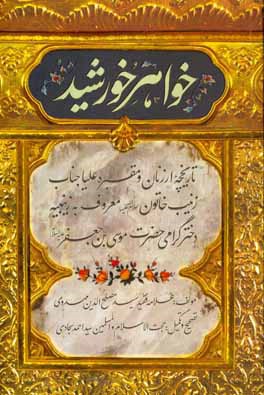 خواهر خورشید
تاریخچه ارزنان و مقبره علیا جناب
زینب خاتون معروف به زینبیه
دختر گرامی حضرت موسی بن جعفر
مولف: علامه فقید سید مصلح الدین مهدوی
تصحیح و تکمیل: حجت الاسلام و المسلمین سید احمد سجادی